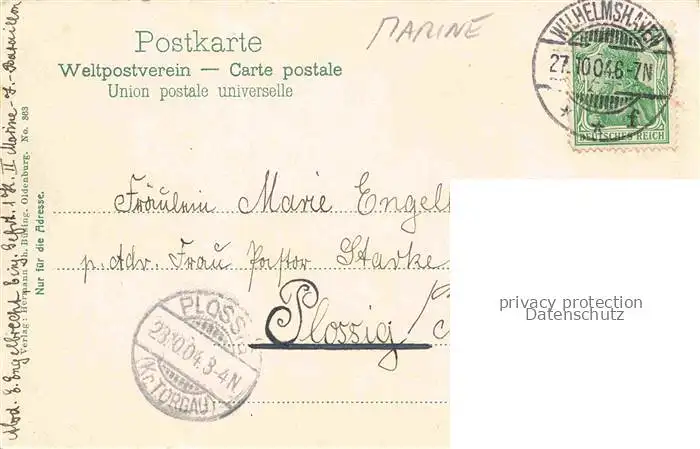 Postkarte
Weltpostverein — Carte postale
Union postale universelle
MARINE
WILHELMSHAVEN
27.10.04.6-7N
* * f
DEUTSCHES REICH
Fräulein Marie Engel
p. Adr. Frau Pastor Starke
Plossig
PLOSSIG
28.10.04.3-4N.
(Kr. TORGAU)
Nur für die Adresse.
Verlag: Hermann Oldenburg. No. 863
Abs. E. Engelbrecht II Marine-
privacy protection
Datenschutz